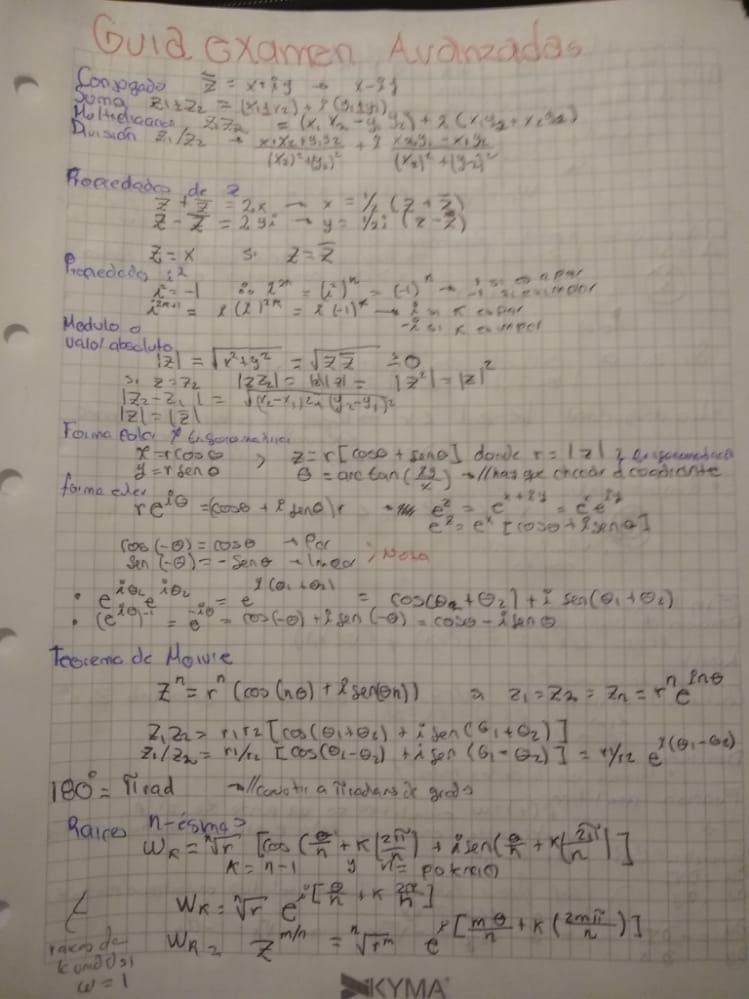 Guia examen Avanzadas
Conjugado z̅ = x+iy → x-iy
Suma z₁±z₂ = (x₁±x₂) + i(y₁±y₁)
z₁z₂ = (x₁x₂ - y₁y₂) + i(x₁y₂ + x₂y₂)
División z₁/z₂ → (x₁x₂+y₁y₂)/((x₂)²+(y₂)²) + i (x₂y₁-x₁y₂)/((x₂)²+(y₂)²)
Propiedades de z
z + z̅ = 2x → x = 1/2 (z + z̅)
z - z̅ = 2yi → y = 1/2i (z - z̅)
z = x si z = z̅
Propiedades i²
i² = -1 ∴ i²ⁿ = (i²)ⁿ = (-1)ⁿ → 1 si es n par
-1 si es impar
= i(i)²ᵏ = i(-1)ᵏ → i si k es par
-i si k es impar
Modulo o
valor absoluto
|z| = √(x²+y²) = √(z z̅) ≥0
si z=z₂ |zz₂| = |z||z| = |z²| = |z|²
|z₂-z₁| = √((x₂-x₁)²+(y₂-y₁)²)
|z| = |z̅|
Forma Polar y trigonometrica
x = rcosθ , z = r[cosθ + senθ] donde r = |z| y
y = rsenθ θ = arctan(iy/x) → //hay que checar el cuadrante
forma euler
re^(iθ) = (cosθ + i senθ)r → e^z = e^(x+iy) = e^x e^(iy)
e^z = e^x [cosθ + i senθ]
cos(-θ) = cosθ → Par
sen(-θ) = -senθ → Impar ; Nota
• e^(iθ₂) e^(iθ₂) = e^(i(θ₁+θ₂)) = cos(θ₂+θ₂) + i sen(θ₁+θ₂)
• (e^(iθ))⁻¹ = e^(-iθ) = cos(-θ) + i sen(-θ) = cosθ - i senθ
Teorema de Moivre
zⁿ = rⁿ(cos(nθ) + i sen(θn)) si z₁=z₂=zₙ = rⁿe^(inθ)
z₁z₂ = r₁r₂[cos(θ₁+θ₂) + i sen(θ₁+θ₂)]
z₁/z₂ = r₁/r₂ [cos(θ₁-θ₂) + i sen(θ₁-θ₂)] = r₁/r₂ e^(i(θ₁-θ₂))
180° = π rad → // a de grados
Raices n-ésimas
wₖ = ⁿ√r [cos(θ/n + k(2π/n)) + i sen(θ/n + k(2π/n))]
k = n-1 y n= potencia
wₖ = ⁿ√r e^(i[θ/n + k 2π/n])
wₖ = z^(m/n) = ⁿ√(rᵐ) e^(i[mθ/n + k(2mπ/n)])
raices de
w = 1
KYMA